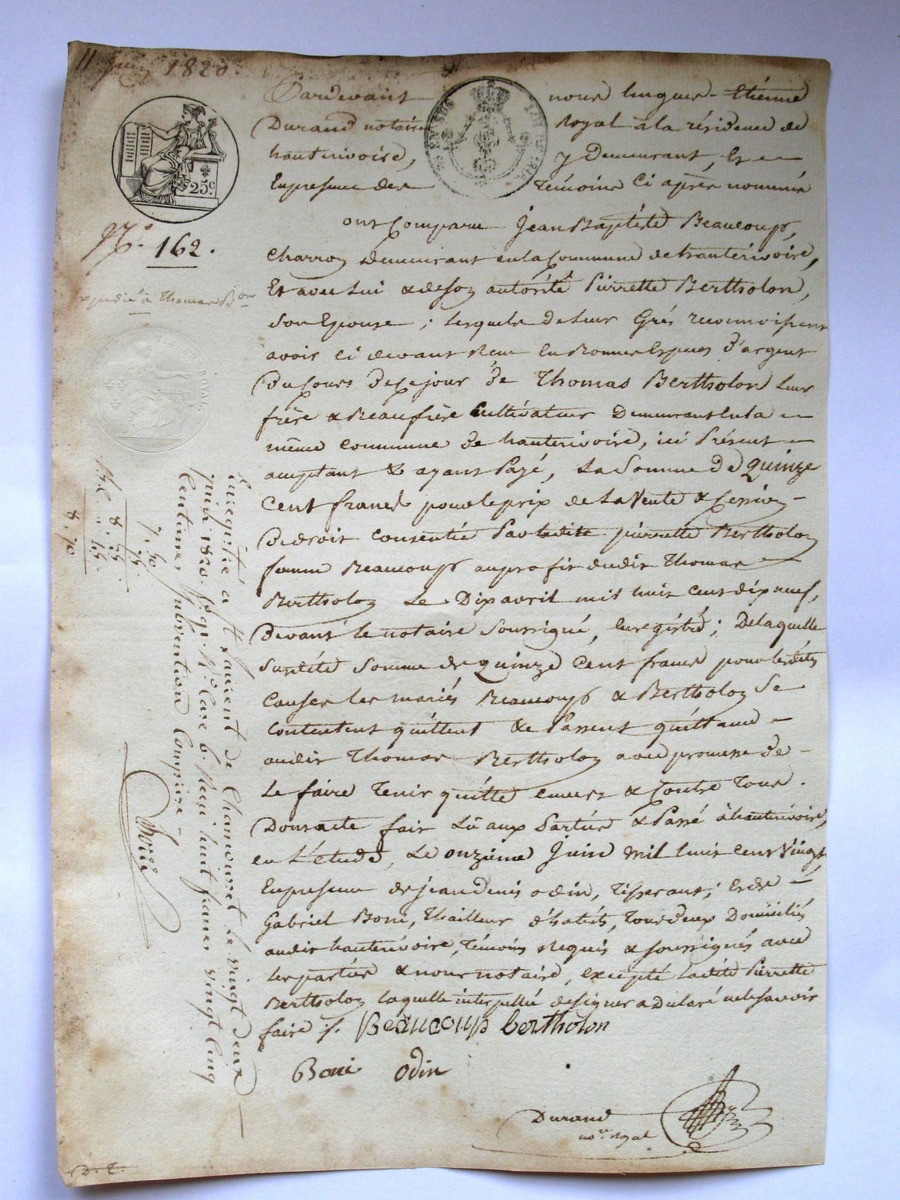 11 Juin 1820
25 c.
N.° 162.
expédié à Thomas Bon
TIMBRE ROYAL
Pardevant nous Hugues-Etienne
Durand notaire Royal à la résidence de
hauterivoire, y Demeurant, Et
En presence des Temoins Ci après nommés
ont Comparu Jean Baptiste Beaucoup,
Charron demeurant en la Commune de hauterivoire,
Et avec Lui & de son autorité Pierrette Bertholon,
Son Epouse ; lesquels de leur Grés reconnoissent
avoir Ci devant Reçu En Bonnes Especes d'argent
du Cours de Ce jour de Thomas Bertholon leur
frère & Beaufrère Cultivateur Demeurant en la
même commune de hauterivoire, ici Présent
acceptant & ayant Payé, La Somme de Quinze
Cent francs pour le prix de La Vente & Cession
De droit Consentie Par Ladite pierrette Bertholon
femme Beaucoup au profit dudit Thomas
Bertholon Le Dix avril mil huit Cent dix neuf,
devant le notaire Soussigné, Enregistré ; De laquelle
Susdite Somme de Quinze Cent francs pour les dites
Causes les mariés Beaucoup & Bertholon Se
Contentent quittent & Passent quittance
audit Thomas Bertholon avec promesse de
Le faire Tenir quitte envers & Contre Tous.
Dont acte fait Lû aux Parties & Passé à hauterivoire,
en L'étude, Le onzieme Juin mil huit Cent Vingt
En presence de jean denis odin, Tisserant ; Et de
Gabriel Boni, Thailleur d'habits, Tous deux Domiciliés
audit hauterivoire, Témoins Requis & soussignés avec
les parties & nous notaire, excepté ladite Pierrette
Bertholon laquelle interpellée de signer a déclaré ne le savoir
faire /.
Beaucoup bertholon
Boni odin
Durand
no.re royal
Enregistré a St Laurent de Chamousset le vingt deux
juin 1820. f.° 91. R.° Case 6. Reçu huit francs vingt cinq
Centimes Subvention Comprise
7. 50
75
8. 25
8. 70
D. T.